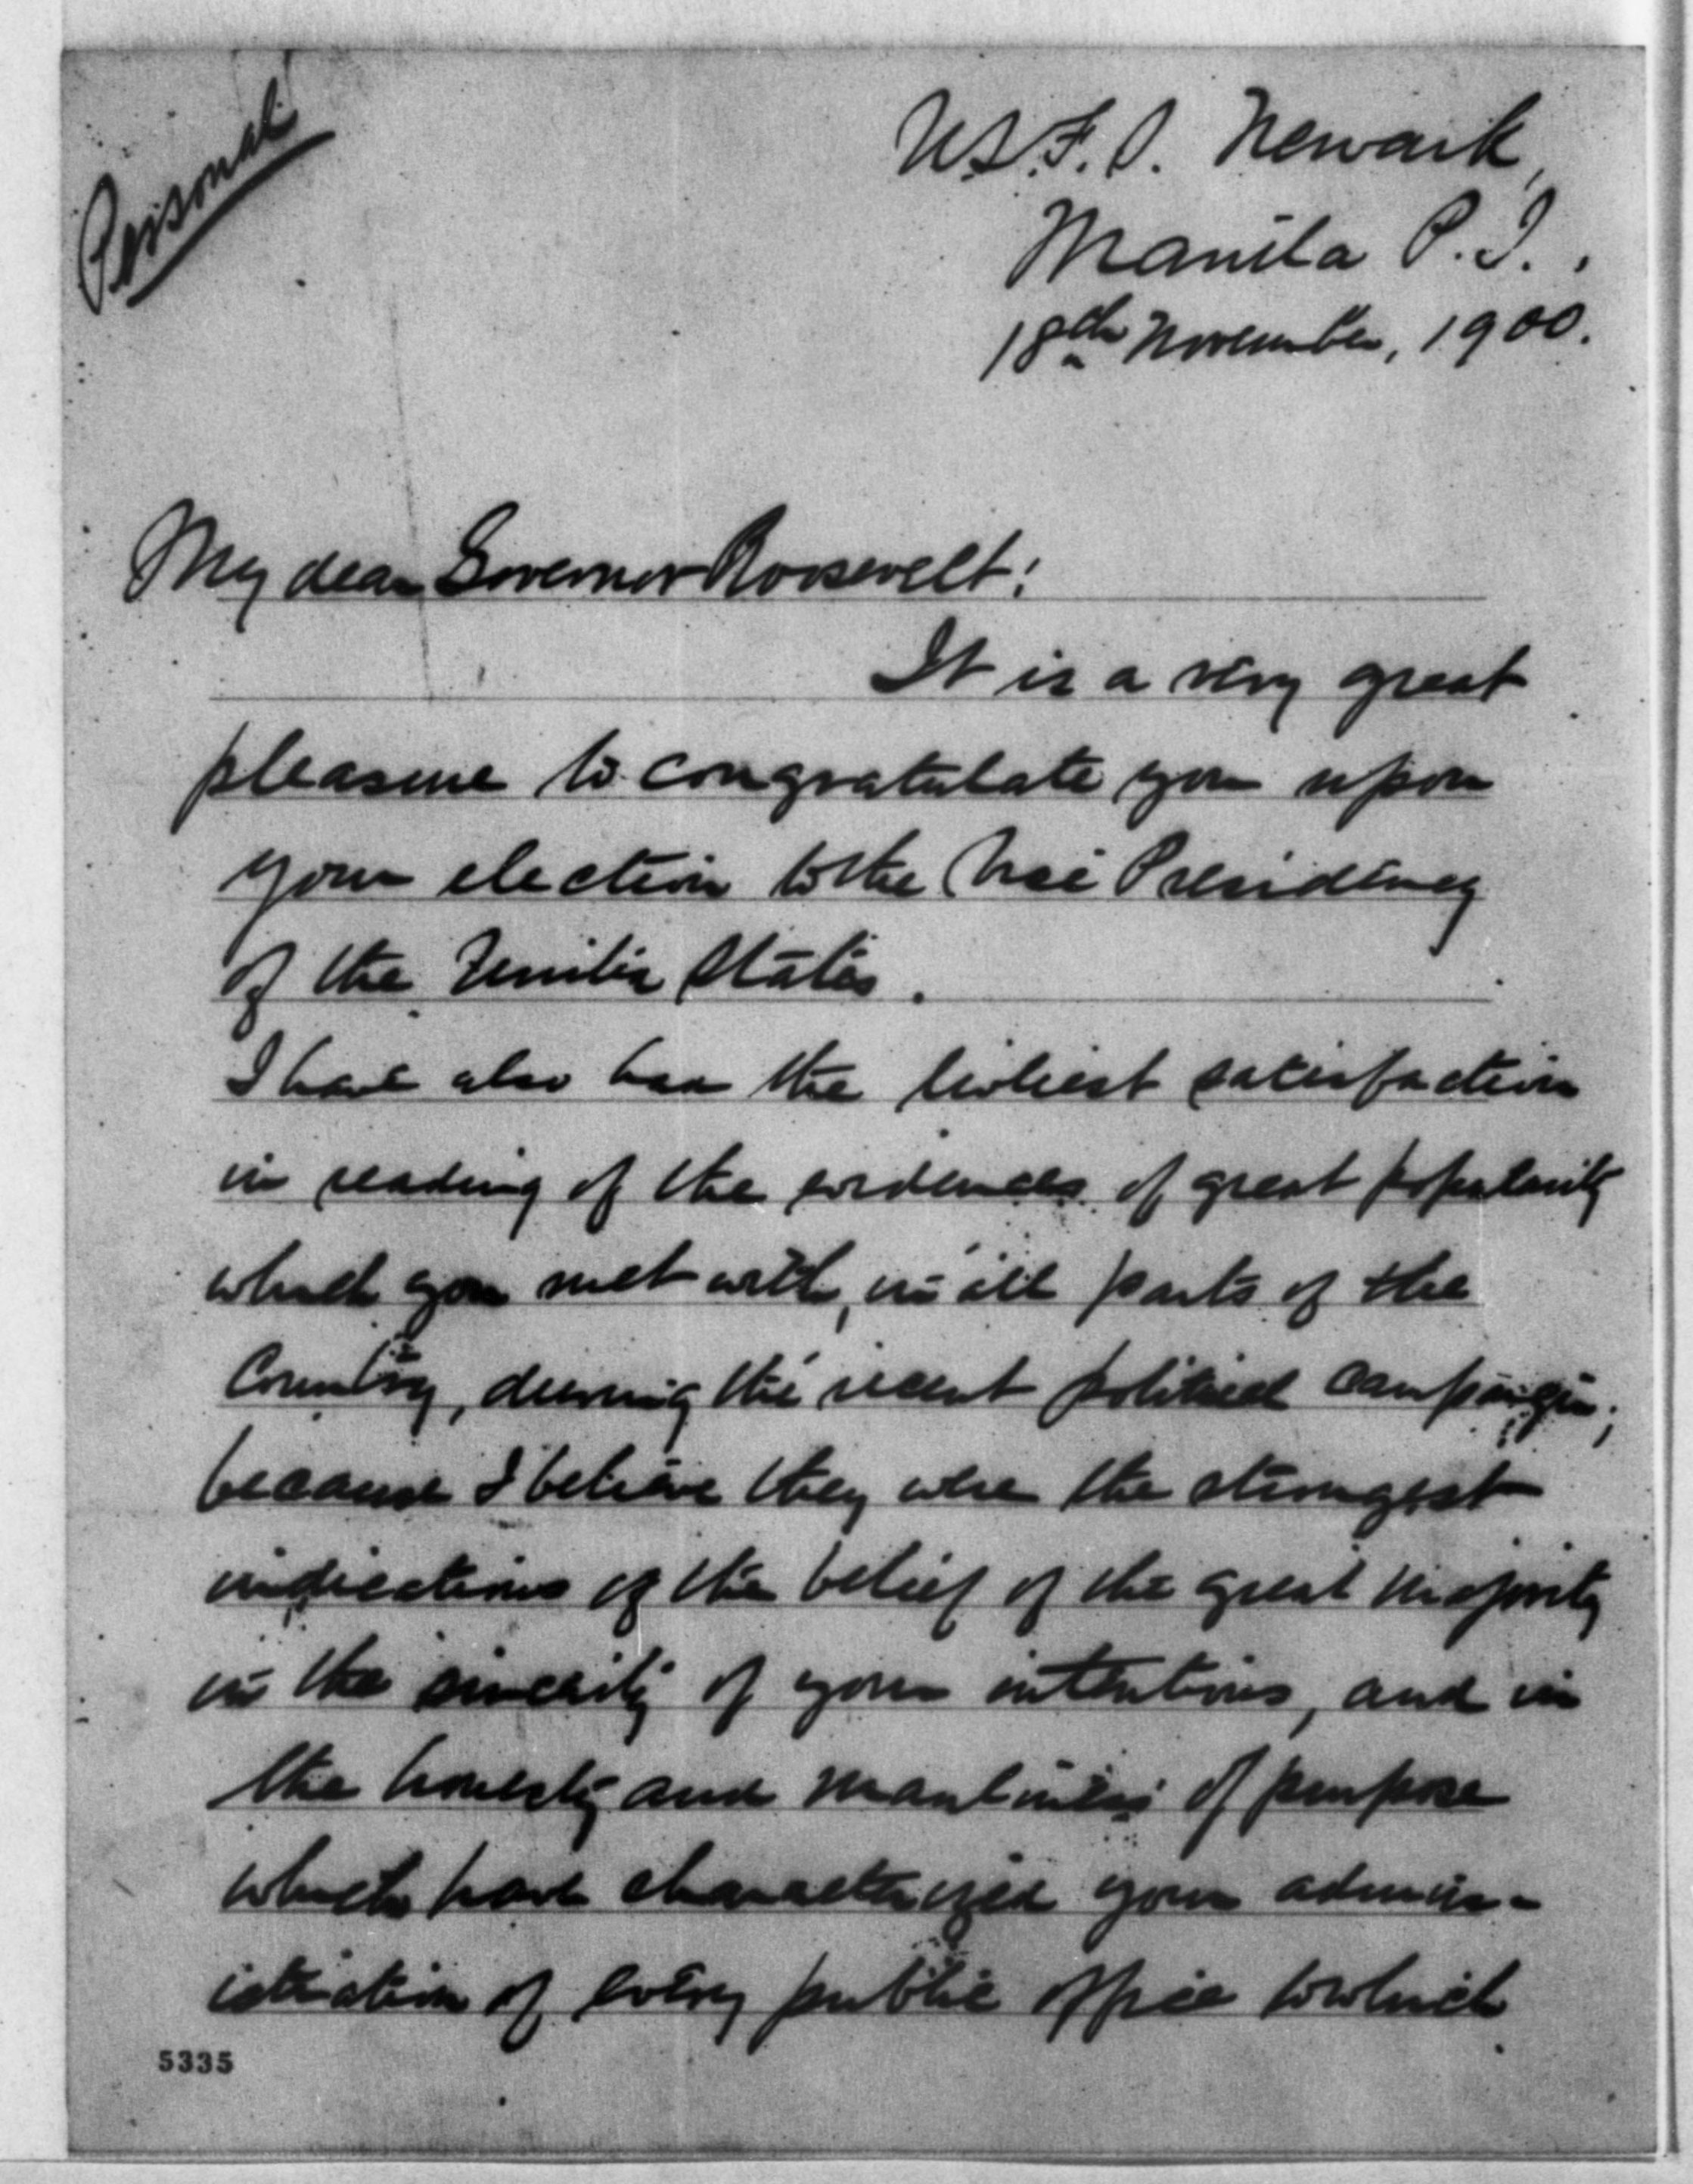 Personal
U.S.F.S. Newark,
Manila P.I.,
18th November, 1900.
My dear Governor Roosevelt:
It is a very great
pleasure to congratulate you upon
your election to the Vice Presidency
of the United States.
I have also had the liveliest satisfaction
in reading of the evidences of great popularity
which you met with, in all parts of the
Country, during the recent political campaign;
because I believe they were the strongest
indications of the belief of the great majority
in the sincerity of your intentions, and in
the honesty and manliness of purpose
which have characterized your admin-
istration of every public office to which
5335